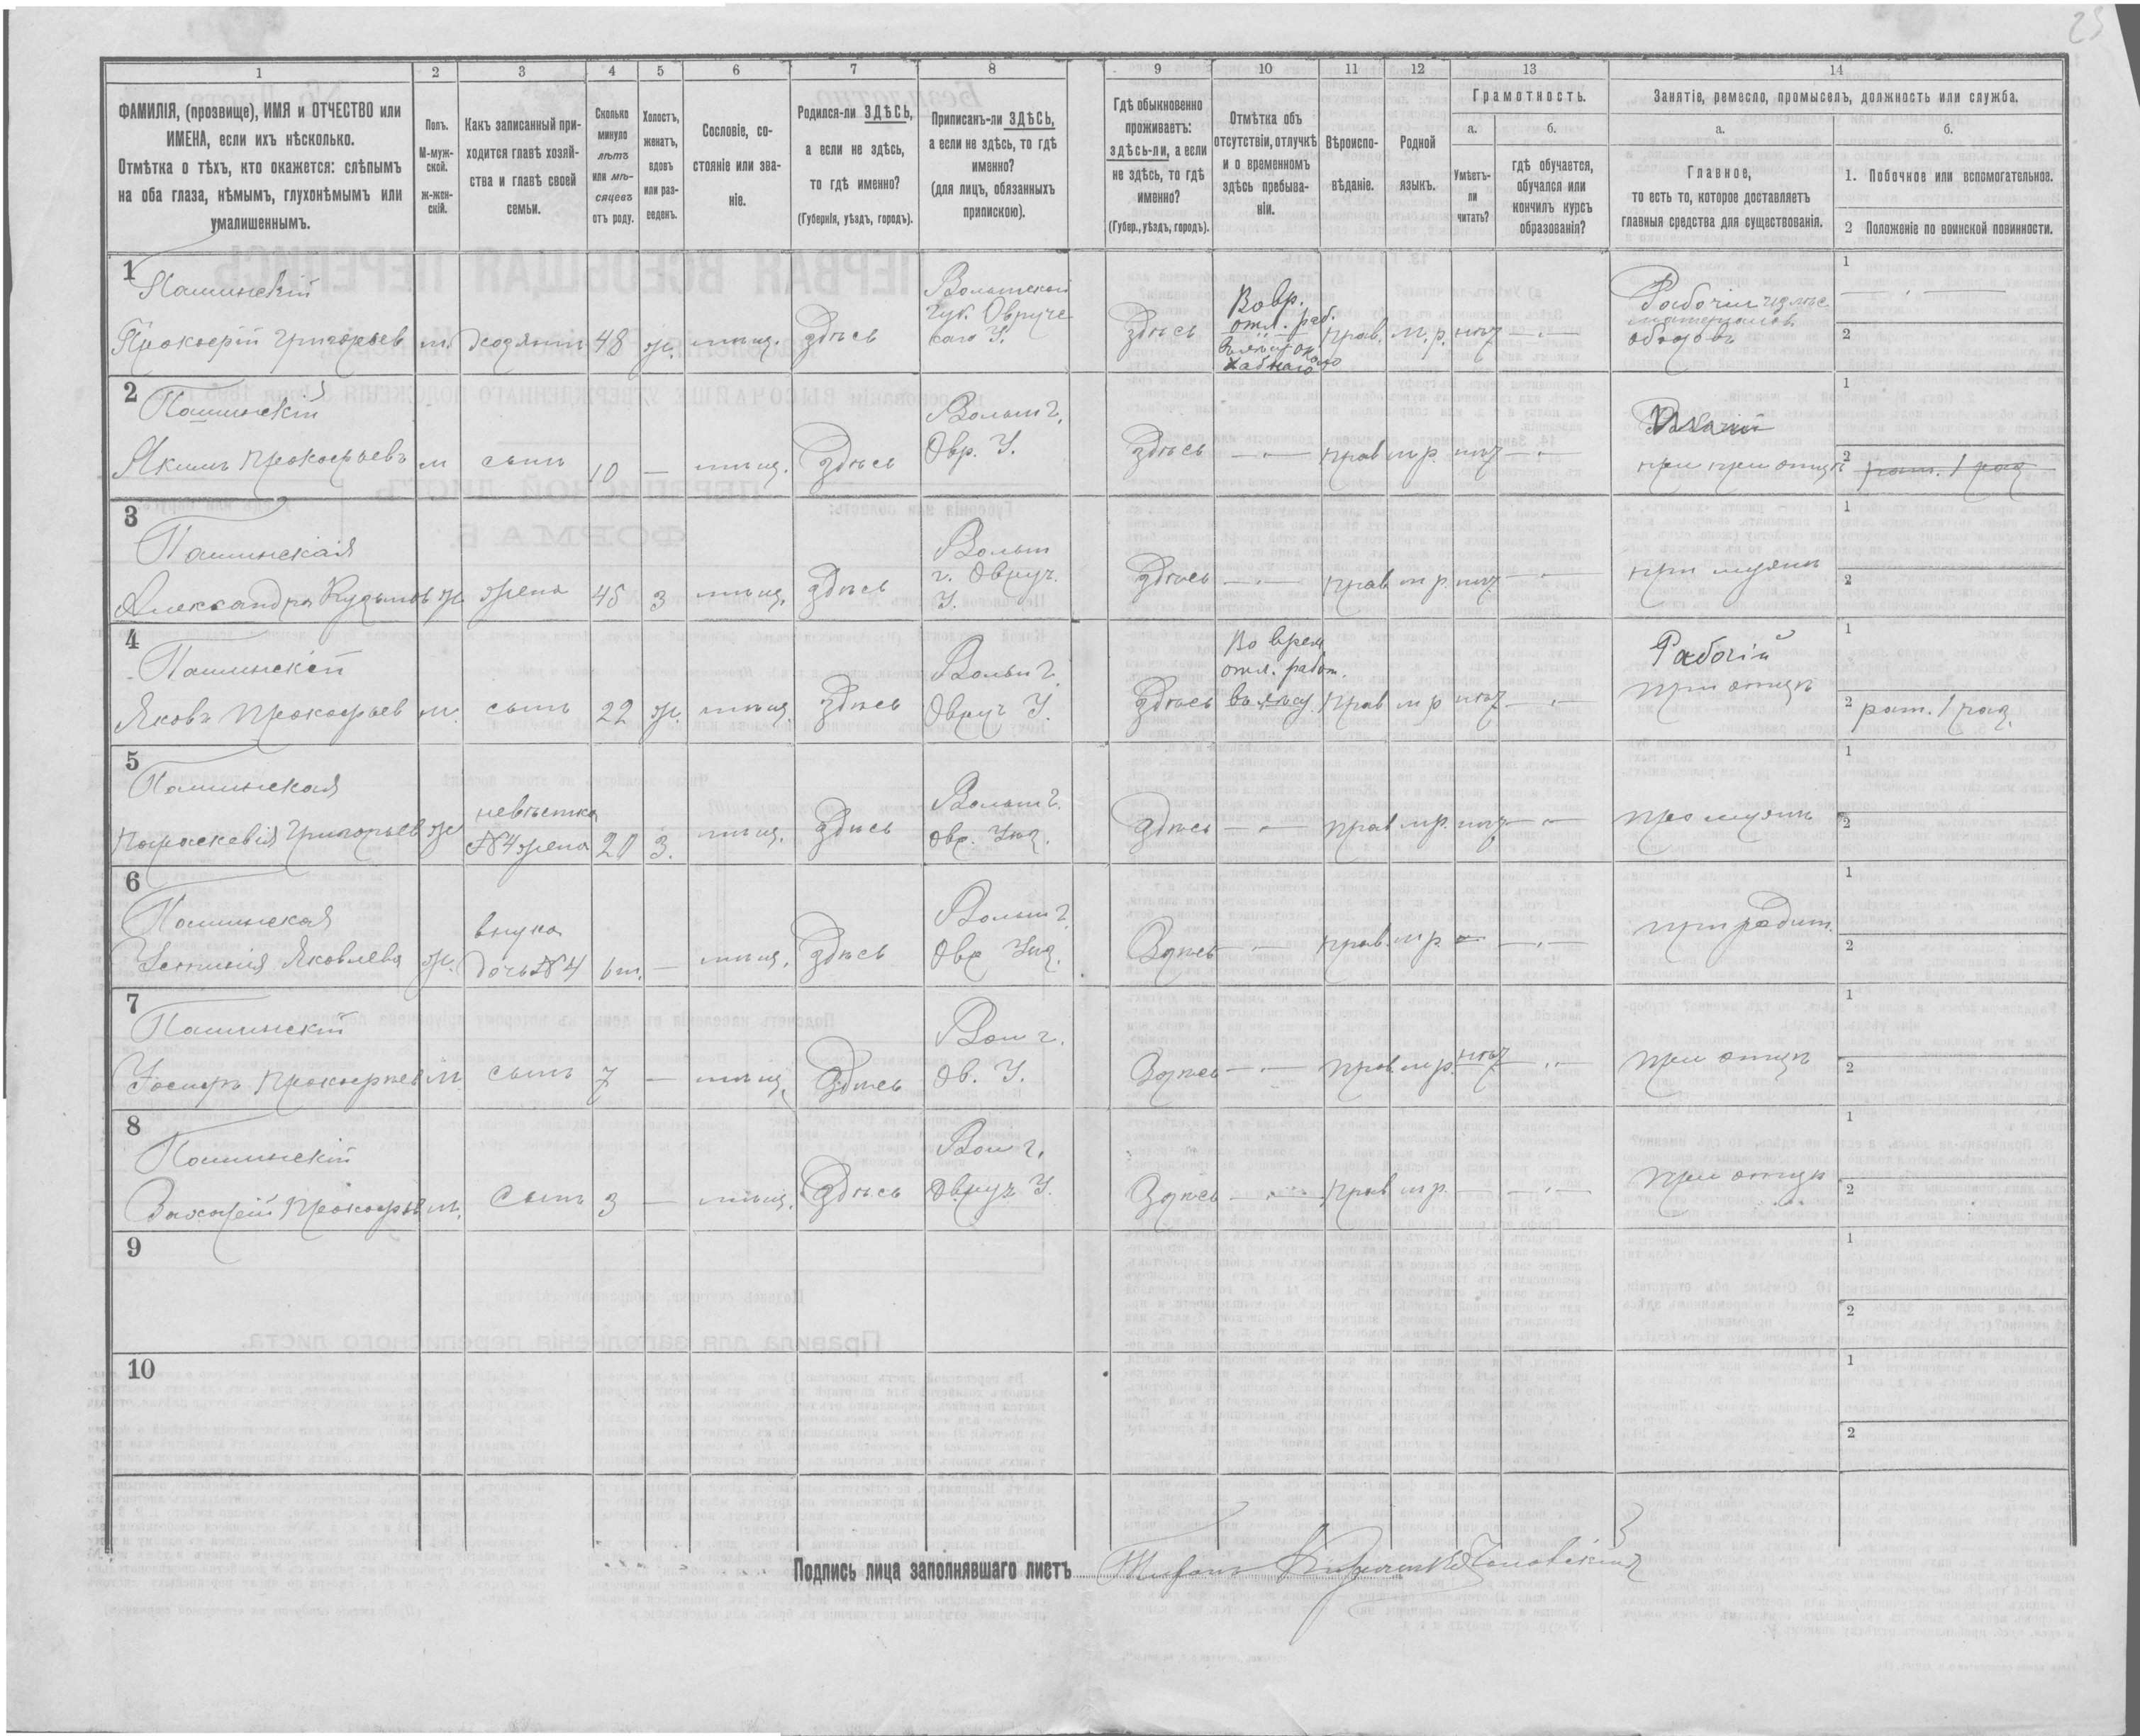 23
1
2
3
4
5
6
7
8
9
10
11
12
13
14
ФАМИЛІЯ, (прозвище), ИМЯ и ОТЧЕСТВО или
ИМЕНА, если ихъ нѣсколько.
Отмѣтка о тѣхъ, кто окажется: слѣпымъ
на оба глаза, нѣмымъ, глухонѣмымъ или
умалишеннымъ.
Полъ.
М-муж-
ской.
ж-жен-
скій.
Какъ записанный при-
ходится главѣ хозяй-
ства и главѣ своей
семьи.
Сколько
минуло
лѣтъ
или мѣ-
сяцевъ
отъ роду.
Холостъ,
женатъ,
вдовъ
или раз-
веденъ.
Сословіе, со-
стояніе или зва-
ніе.
Родился-ли ЗДѢСЬ,
а если не здѣсь,
то гдѣ именно?
(Губернія, уѣздъ, городъ).
Приписанъ-ли ЗДѢСЬ,
а если не здѣсь, то гдѣ
именно?
(для лицъ, обязанныхъ
припискою).
Гдѣ обыкновенно
проживаетъ:
здѣсь-ли, а если
не здѣсь, то гдѣ
именно?
(Губер., уѣздъ, городъ).
Отмѣтка объ
отсутствіи, отлучкѣ
и о временномъ
здѣсь пребыва-
ніи.
Вѣроиспо-
вѣданіе.
Родной
языкъ.
Грамотность.
а.
Умѣетъ-
ли
читать?
б.
гдѣ обучается,
обучался или
кончилъ курсъ
образованія?
Занятіе, ремесло, промыселъ, должность или служба.
а.
Главное,
то есть то, которое доставляетъ
главныя средства для существованія.
б.
1. Побочное или вспомогательное.
2 Положеніе по воинской повинности.
1
Пашинскій
Прокофій Григорьев м. хозяинъ 48 ж. мѣщ. здѣсь
Волынской
Губ. Овруче
каго У.
здѣсь
Во вр.
отл. раб.
прав. м. р. нѣт
Рабочій
1
2
2
Пашинскій
Якимъ Прокофьевъ м сынъ 10 — мѣщ. здѣсь
Волын г.
Овр. У.
здѣсь прав м р. нѣт
при отцѣ
1
2 рат. 1 раз
3
Пашинская
Александра Кузьмов ж жена 45 з мѣщ. здѣсь
Волын
г. Овруч.
У.
здѣсь прав м р. нѣт
при мужѣ
1
2
4
Пашинскій
Яковъ Прокофьев м. сынъ 22 ж. мѣщ. здѣсь
Волын г.
Овруч У.
здѣсь
Во врем
отл. работ.
в лѣсу прав м р нѣт
Рабочій
при отцѣ
1
2 рат. 1 раз.
5
Пашинская
Параскевія Григорьев ж
невѣстка
№4 жена 20 з. мѣщ. здѣсь
Волын г.
Овр. Уѣз.
здѣсь прав м р. нѣт
при мужѣ
1
2
6
Пашинская
Устинія Яковлева ж.
внука
дочь №4 6 м. — мѣщ. здѣсь
Волын г.
Овр Уѣз.
Здѣсь прав. м р.
при родит.
1
2
7
Пашинскій
Іосифъ Прокофьев м сынъ 7 — мѣщ. здѣсь
Вол г.
Ов. У.
Здѣсь прав. м р. нѣт
при отцѣ
1
2
8
Пашинскій
Захарій Прокофьев м. сынъ 3 — мѣщ. здѣсь
Вол г.
Овруч У.
Здѣсь прав м р.
при отцѣ
1
2
9
1
2
10
1
2
Подпись лица заполнявшаго листъ